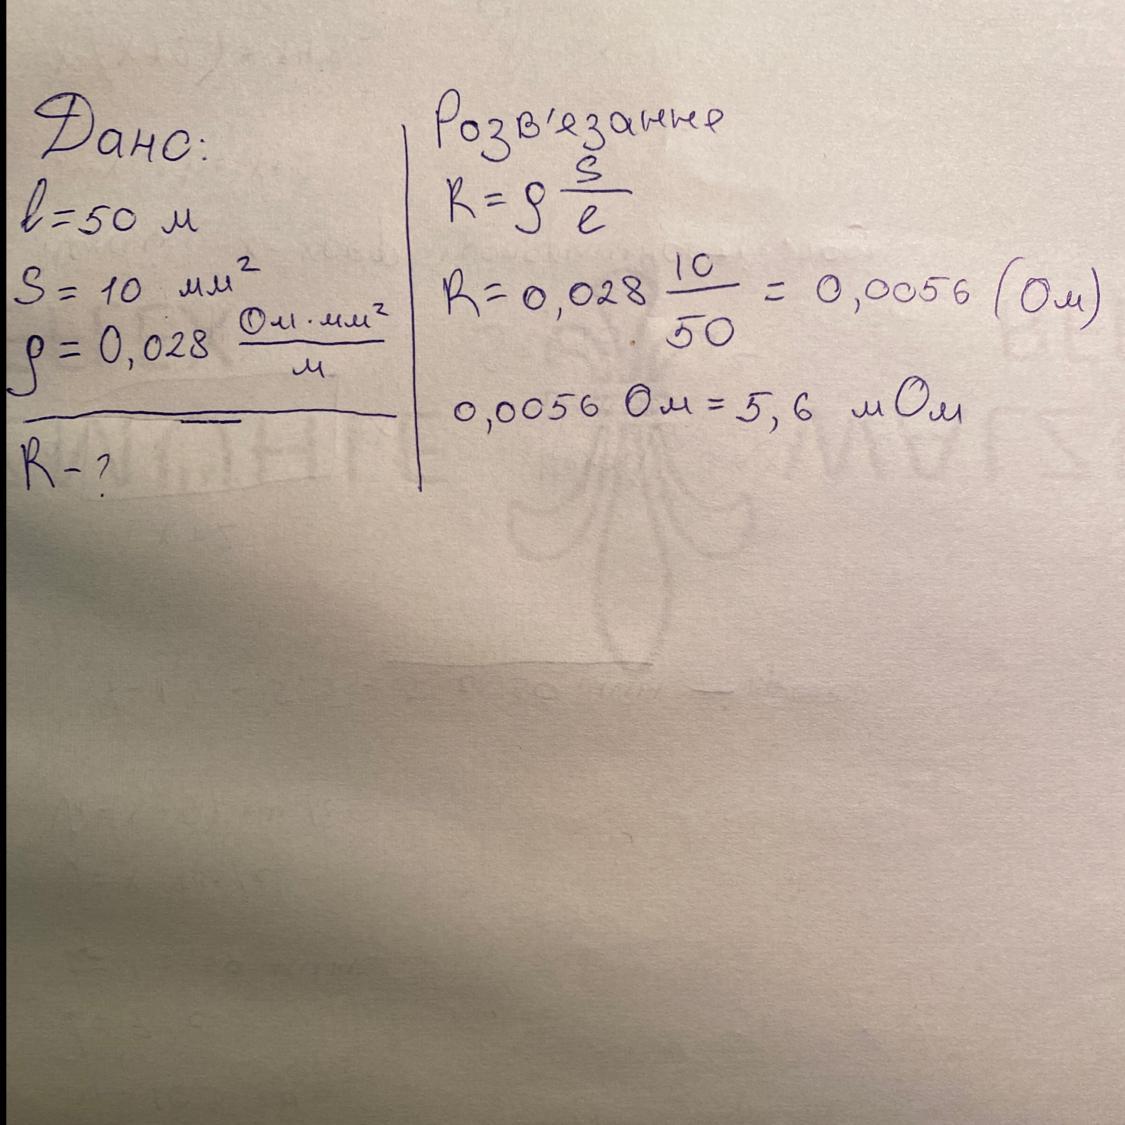 Дано:
l = 50 м
S = 10 мм²
ρ = 0,028 Ом·мм²/м
R - ?
Розв'язання
R = ρ S/l
R = 0,028 10/50 = 0,0056 (Ом)
0,0056 Ом = 5,6 мОм